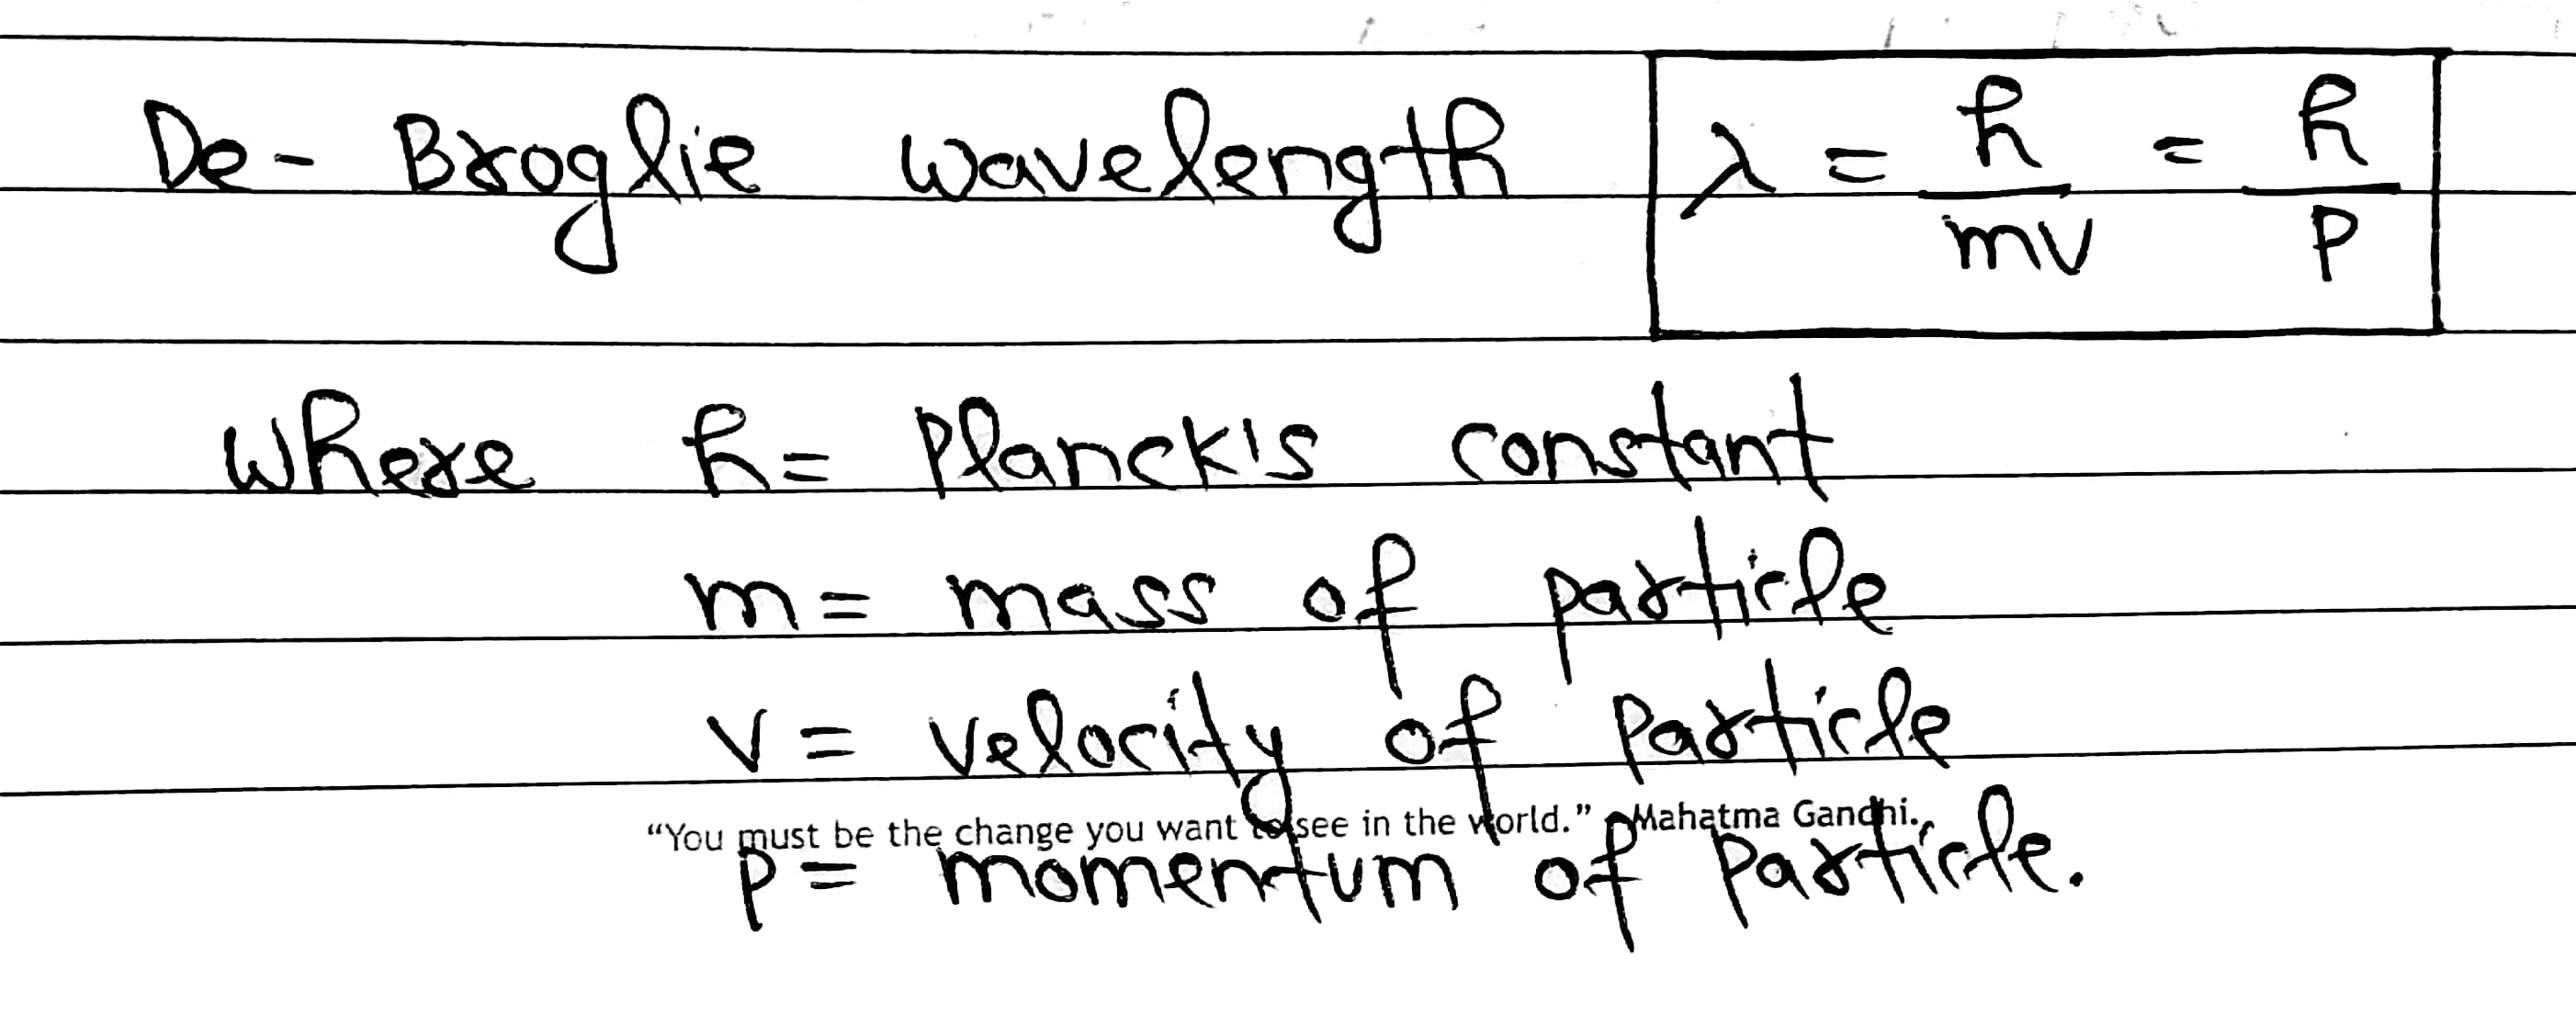 De-Broglie wavelength λ = h/mv = h/p
where h = Planck's constant
m = mass of particle
v = velocity of particle
"You must be the change you want to see in the world." Mahatma Gandhi.
p = momentum of particle.